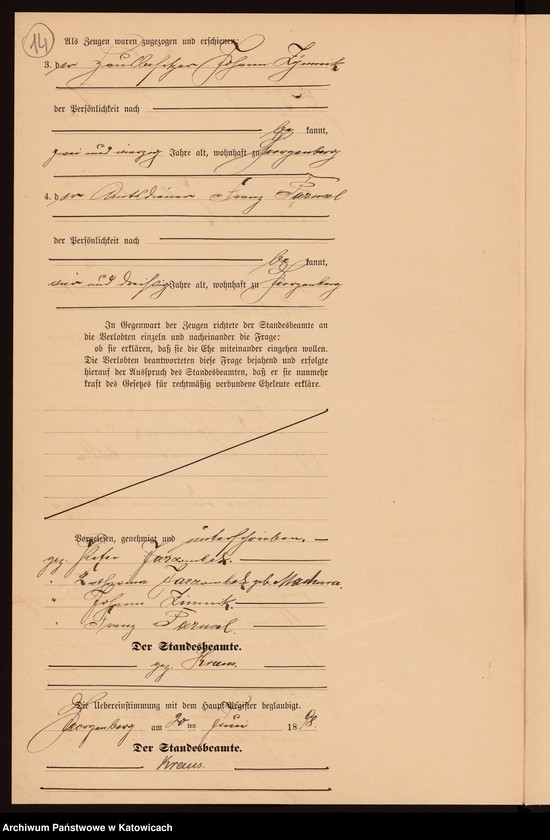 14
Als Zeugen waren zugezogen und erschienen:
3. der Häuslbesitzer Johann Zymnik
der Persönlichkeit nach
be kannt,
zwei und vierzig Jahre alt, wohnhaft zu Georgenberg
4. der Amtsdiener Franz Parusel
der Persönlichkeit nach
be kannt,
vier und dreißig Jahre alt, wohnhaft zu Georgenberg
In Gegenwart der Zeugen richtete der Standesbeamte an
die Verlobten einzeln und nacheinander die Frage:
ob sie erklären, daß sie die Ehe miteinander eingehen wollen.
Die Verlobten beantworteten diese Frage bejahend und erfolgte
hierauf der Ausspruch des Standesbeamten, daß er sie nunmehr
kraft des Gesetzes für rechtmäßig verbundene Eheleute erkläre.
Vorgelesen, genehmigt und unterschrieben.
gez. Peter Jarzombek.
" Jarzombek geb. Machura.
" Johann Zimnik.
" Franz Parusel.
Der Standesbeamte.
gez. Kraus.
Die Uebereinstimmung mit dem Haupt-Register beglaubigt.
Georgenberg am 20 ten Juni 1898.
Der Standesbeamte.
Kraus.
Archiwum Państwowe w Katowicach